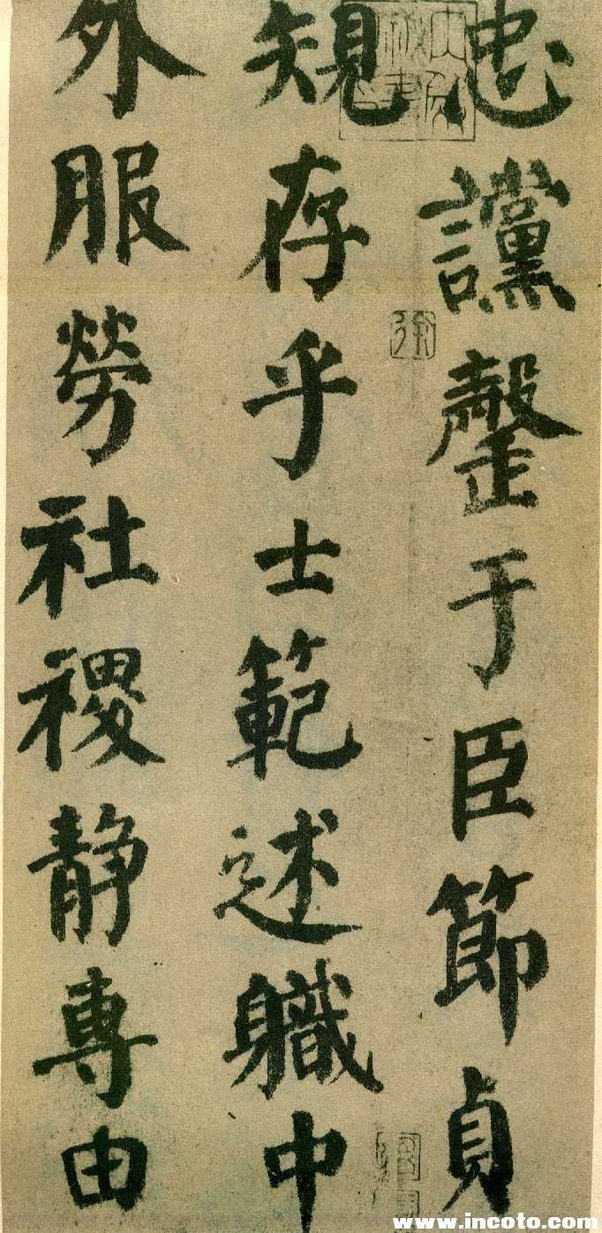 忠讜罄于臣節貞
規存乎士範述職中
外服勞社稷静專由
www.incoto.com